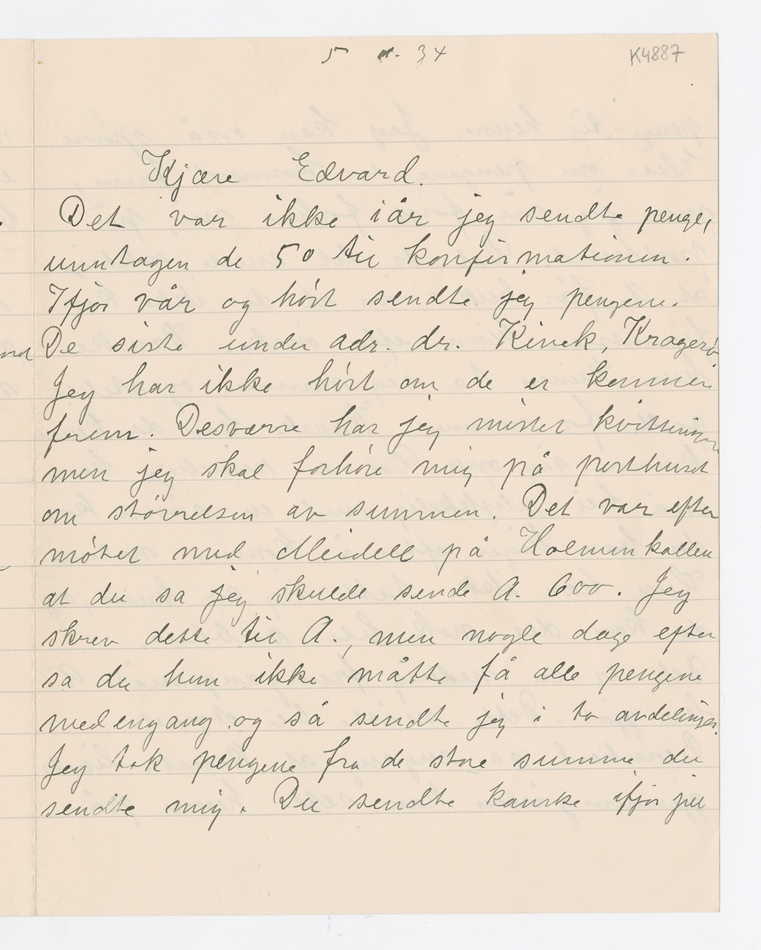 5 34
K4887
Kjære Edvard.
Det var ikke iår jeg sendte penge,
unntagen de 50 til konfirmationen.
Ifjor vår og høst sendte jeg pengene.
De siste under adr. dr. Kinck, Kragerø
Jeg har ikke hørt om de er kommet
frem. Desværre har jeg mistet kvitteringen
men jeg skal forhøre mig på posthuset
om størrelsen av summen. Det var efter
møtet med Meidell på Holmenkollen
at du sa jeg skulde sende A. 600. Jeg
skrev dette til A., men nogle dage efter
sa du hun ikke måtte få alle pengene
medengang og så sendte jeg i to avdelinger.
Jeg tok pengene fra de store summe du
sendte mig. Du sendte kanske ifjor jul